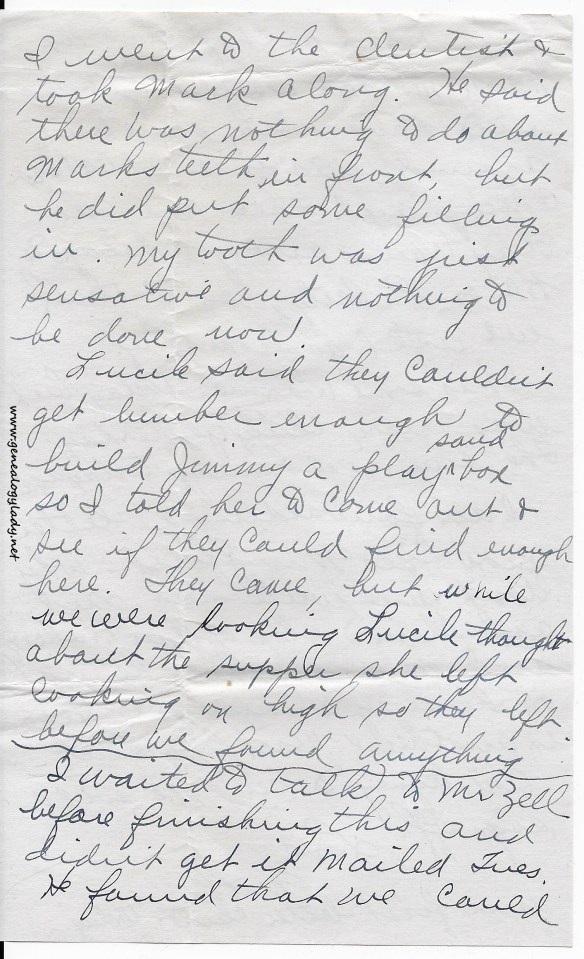 I went to the dentist &
took Mark along. He said
there was nothing to do about
Marks teeth in front, but
he did put some filling
in. My tooth was just
sensative and nothing to
be done now.
Lucile said they couldn't
get lumber enough to
sand
build Jimmy a play box
so I told her to come out &
see if they could find enough
here. They came, but while
we were looking Lucile thought
about the supper she left
cooking on high so they left
before we found anything.
I waited to talk to Mr Zell
before finishing this and
didn't get it mailed Tues.
He found that we could
www.genealogylady.net